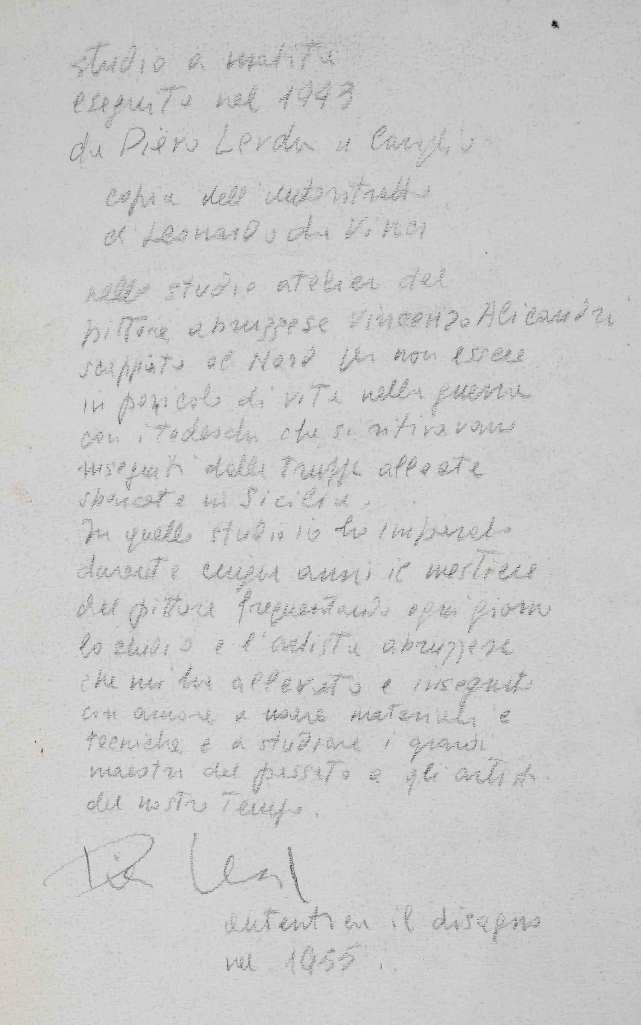 studio a matita
eseguito nel 1943
da Piero Lerda a Caraglio
copia dell'autoritratto
di Leonardo da Vinci
nello studio atelier del
pittore abruzzese Vincenzo Alicandri
scappato al Nord per non essere
in pericolo di vita nella guerra
con i tedeschi che si ritiravano
inseguiti dalle truppe alleate
sbarcate in Sicilia.
In quello studio io ho imparato
durante cinque anni il mestiere
del pittore frequentando ogni giorno
lo studio e l'artista abruzzese
che mi ha allevato e insegnato
con amore a usare materiali e
tecniche e a studiare i grandi
maestri del passato e gli artisti
del nostro tempo.
il disegno
nel 1955.